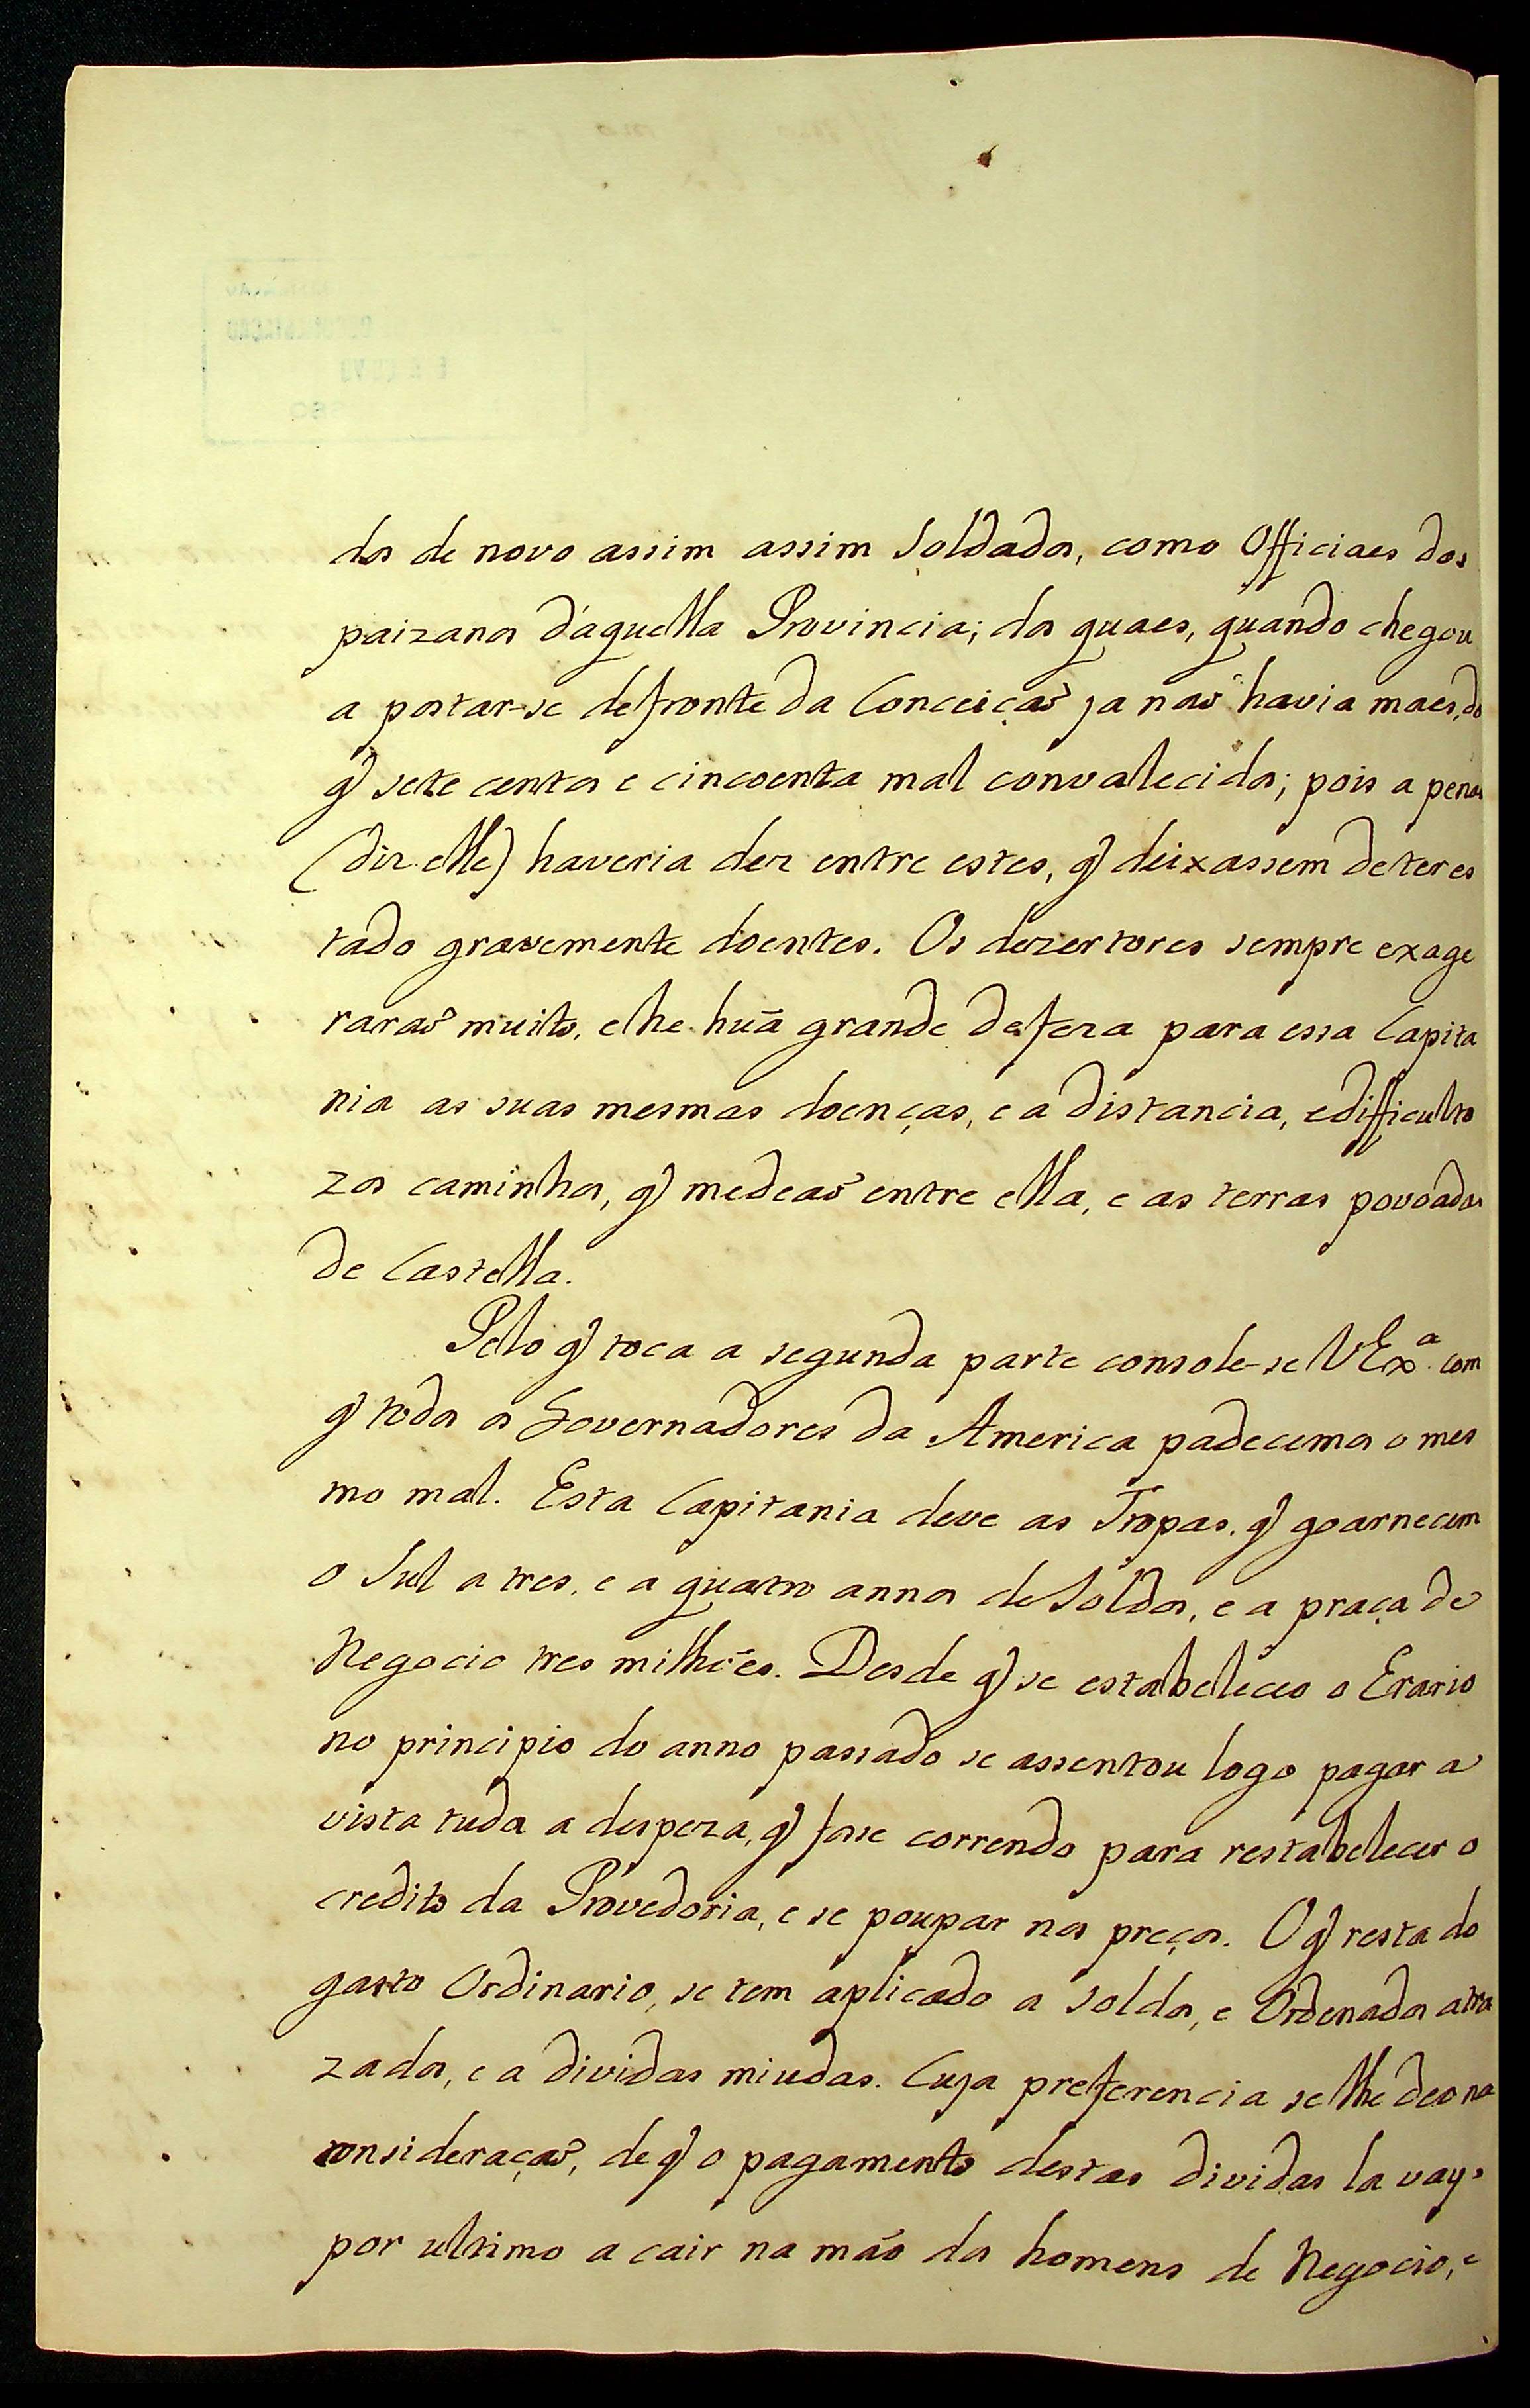 dos de novo assim assim Soldados, como Officiaes dos
paizanos d'aquella Provincia; dos quaes, quando chegou
a postar-se defronte da Conceiçaõ ja naõ havia maes, do
q̃ sete centos e cincoenta mal convalecidos; pois a penas
(diz elle) haveria dez entre estes, q̃ deixassem de ter es
tado gravemente doentes. Os dezertores sempre exage
raraõ muito, e he huã grande defeza para essa Capita
nia as suas mesmas doenças, e a distancia, e difficulto
zos caminhos, q̃ medeaõ entre ella, e as terras povoadas
de Castella.
Pelo q̃ toca a segunda parte console-se VExª. com
q̃ todos os Governadores da America padecemos o mes
mo mal. Esta Capitania deve as Tropas, q̃ goarnecem
o Sul a tres, e a quatro annos de Soldos, e a praça de
Negocio tres milhões. Desde q̃ se estabeleceo o Erario
no principio do anno passado se assentou logo pagar a
vista tuda a despeza, q̃ fose correndo para restabelecer o
credito da Provedoria, e se poupar nos preços. O q̃ resta do
gasto Ordinario, se tem aplicado a soldos, e Ordenados atra
zados, e a dividas miudas. Cuja preferencia se lhe deo na
consideraçaõ, de q̃ o pagamento destas dividas la vay
por ultimo a cair na mão dos homens de Negocio, e